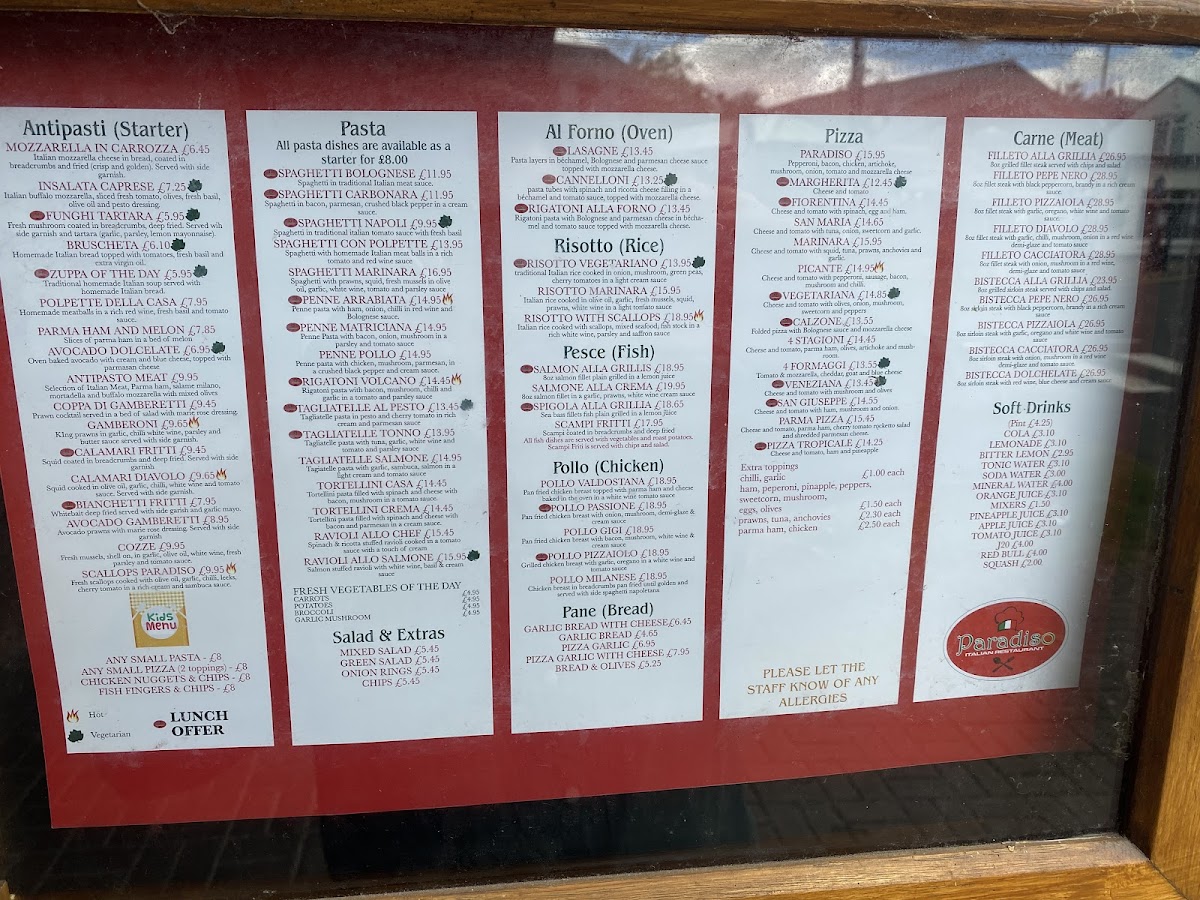 Antipasti (Starter)
MOZZARELLA IN CARROZZA £6.45
Italian mozzarella cheese in bread, coated in
breadcrumbs and fried (crisp and golden). Served with side
garnish.
INSALATA CAPRESE £7.25
Italian buffalo mozzarella, sliced fresh tomato, olives, fresh basil,
olive oil and pesto dressing.
FUNGHI TARTARA £5.95
Fresh mushroom coated in breadcrumbs, deep fried. Served wih
side garnish and tartara (garlic, parsley, lemon mayonnaise).
BRUSCHETA £6.10
Homemade Italian bread topped with tomatoes, fresh basil and
extra virgin oil.
ZUPPA OF THE DAY £5.95
Traditional homemade Italian soup served with
homemade Italian bread.
POLPETTE DELLA CASA £7.95
Homemade meatballs in a rich red wine, fresh basil and tomato
sauce.
PARMA HAM AND MELON £7.85
Slices of parma ham in a bed of melon
AVOCADO DOLCELATE £6.95
Oven baked avocado with cream and blue cheese, topped with
parmesan cheese
ANTIPASTO MEAT £9.95
Selection of Italian Meat, Parma ham, salame milano,
mortadella and buffalo mozzarella with mixed olives
COPPA DI GAMBERETTI £9.45
Prawn cocktail served in a bed of salad with marie rose dressing.
GAMBERONI £9.65
KIng prawns in garlic, chilli white wine, parsley and
butter sauce served with side garnish.
CALAMARI FRITTI £9.45
Squid coated in breadcrumbs and deep fried. Served with side
garnish.
CALAMARI DIAVOLO £9.65
Squid cooked in olive oil, garlic, chilli, white wine and tomato
sauce. Served with side garnish.
BIANCHETTI FRITTI £7.95
Whitebait deep fried served with side garish and garlic mayo.
AVOCADO GAMBERETTI £8.95
Avocado prawns with marie rose dressing. Served with side
garnish
COZZE £9.95
Fresh mussels, shell on, in garlic, olive oil, white wine, fresh
parsley and tomato sauce.
SCALLOPS PARADISO £9.95
Fresh scallops cooked with olive oil, garlic, chilli, leeks,
cherry tomato in a rich cream and sambuca sauce.
Kids
Menu
ANY SMALL PASTA - £8
ANY SMALL PIZZA (2 toppings) - £8
CHICKEN NUGGETS & CHIPS - £8
FISH FINGERS & CHIPS - £8
Hot
Vegetarian
LUNCH
OFFER
Pasta
All pasta dishes are available as a
starter for £8.00
SPAGHETTI BOLOGNESE £11.95
Spaghetti in traditional Italian meat sauce.
SPAGHETTI CARBONARA £11.95
Spaghetti in bacon, parmesan, crushed black pepper in a cream
sauce.
SPAGHETTI NAPOLI £9.95
Spaghetti in traditional Italian tomato sauce with fresh basil
SPAGHETTI CON POLPETTE £13.95
Spaghetti with homemade Italian meat balls in a rich
tomato and red wine sauce.
SPAGHETTI MARINARA £16.95
Spaghetti with prawns, squid, fresh mussels in olive
oil, garlic, white wine, tomato and parsley sauce
PENNE ARRABIATA £14.95
Penne pasta with ham, onion, chilli in red wine and
Bolognese sauce.
PENNE MATRICIANA £14.95
Penne Pasta with bacon, onion, mushroom in a
parsley and tomato sauce
PENNE POLLO £14.95
Penne pasta with chicken, mushroom, parmesan, in
a crushed black pepper and cream sauce.
RIGATONI VOLCANO £14.45
Rigatoni pasta with bacon, mushroom, chilli and
garlic in a tomato and parsley sauce
TAGLIATELLE AL PESTO £13.45
Tagliatelle pasta in pesto and cherry tomato in rich
cream and parmesan sauce
TAGLIATELLE TONNO £13.95
Tagliatelle pasta with tuna, garlic, white wine and
tomato and parsley sauce
TAGLIATELLE SALMONE £14.95
Tagliatelle pasta with garlic, sambuca, salmon in a
light cream and tomato sauce
TORTELLINI CASA £14.45
Tortellini pasta filled with spinach and cheese with
bacon, mushroom in a tomato sauce.
TORTELLONI CREMA £14.45
Tortelloni pasta filled with spinach and cheese with
bacon and parmesan in a cream sauce.
RAVIOLI ALLO CHEF £15.45
Spinach & ricotta stuffed ravioli cooked in a tomato
sauce with a touch of cream
RAVIOLI ALLO SALMONE £15.95
Salmon stuffed ravioli with white wine, basil & cream
sauce
FRESH VEGETABLES OF THE DAY
CARROTS £4.95
POTATOES £4.95
BROCCOLI £4.95
GARLIC MUSHROOM £4.95
Salad & Extras
MIXED SALAD £5.45
GREEN SALAD £5.45
ONION RINGS £5.45
CHIPS £5.45
Al Forno (Oven)
LASAGNE £13.45
Pasta layers in béchamel, Bolognese and parmesan cheese sauce
topped with mozzarella cheese.
CANNELLONI £13.25
pasta tubes with spinach and ricotta cheese filling in a
béchamel and tomato sauce, topped with mozzarella cheese.
RIGATONI ALLA FORNO £13.45
Rigatoni pasta with Bolognese and parmesan cheese in bécha-
mel and tomato sauce topped with mozzarella cheese.
Risotto (Rice)
RISOTTO VEGETARIANO £13.95
traditional Italian rice cooked in onion, mushroom, green peas,
cherry tomatoes in a light cream sauce
RISOTTO MARINARA £15.95
Italian rice cooked in olive oil, garlic, fresh mussels, squid,
prawns, white wine in a light tomato sauce
RISOTTO WITH SCALLOPS £18.95
Italian rice cooked with scallops, mixed seafood, fish stock in a
rich white wine, parsley and saffron sauce
Pesce (Fish)
SALMON ALLA GRILLIS £18.95
8oz salmon fillet plain grilled in a lemon juice
SALMONE ALLA CREMA £19.95
8oz salmon fillet in a garlic, white wine, prawn cream sauce
SPIGOLA ALLA GRILLIA £18.65
Sea bass fillets fish plain grilled in a lemon juice
SCAMPI FRITTI £17.95
Scampi coated in breadcrumbs and deep fried
All fish dishes are served with vegetables and roast potatoes.
Scampi Friti is served with chips and salad.
Pollo (Chicken)
POLLO VALDOSTANA £18.95
Pan fried chicken breast topped with parma ham and cheese
baked in the oven in a white wine tomato sauce
POLLO PASSIONE £18.95
Pan fried chicken breast with onion, mushroom, demi-glaze &
cream sauce
POLLO GIGI £18.95
Pan fried chicken breast with bacon, mushroom, white wine &
cream sauce
POLLO PIZZAIOLO £18.95
Grilled chicken breast with garlic, oregano in a white wine and
tomato sauce
POLLO MILANESE £18.95
Chicken breast in breadcrumbs pan fried until golden and
served with side spaghetti napoletana
Pane (Bread)
GARLIC BREAD WITH CHEESE£6.45
GARLIC BREAD £4.65
PIZZA GARLIC £6.95
PIZZA GARLIC WITH CHEESE £7.95
BREAD & OLIVES £5.25
Pizza
PARADISO £15.95
Pepperoni, bacon, chicken, artichoke,
mushroom, onion, tomato and mozzarella cheese
MARGHERITA £12.45
Cheese and tomato
FIORENTINA £14.45
Cheese and tomato with spinach, egg and ham.
SAN MARIA £14.65
Cheese and tomato with tuna, onion, sweetcorn and garlic.
MARINARA £15.95
Cheese and tomato with squid, tuna, prawns, anchovies and
garlic.
PICANTE £14.95
Cheese and tomato with pepperoni, sausage, bacon,
mushroom and chilli.
VEGETARIANA £14.85
Cheese and tomato with olives, onion, mushroom,
sweetcorn and peppers
CALZONE £13.55
Folded pizza with Bolognese sauce and mozzarella cheese
4 STAGIONI £14.45
Cheese and tomato, parma ham, olives, artichoke and mush-
room.
4 FORMAGGI £13.55
Tomato & mozzarella, cheddar, goat and blue cheese
VENEZIANA £13.45
Cheese and tomato with mushroom and olives
SAN GIUSEPPE £14.55
Cheese and tomato with ham, mushroom and onion.
PARMA PIZZA £15.45
Cheese and tomato, parma ham, cherry tomato rocketto salad
and shredded parmesan cheese.
PIZZA TROPICALE £14.25
Cheese and tomato, ham and pineapple
Extra toppings
chilli, garlic £1.00 each
ham, peperoni, pinapple, peppers,
sweetcorn, mushroom,
eggs, olives £1.50 each
prawns, tuna, anchovies £2.30 each
parma ham, chicken £2.50 each
PLEASE LET THE
STAFF KNOW OF ANY
ALLERGIES
Carne (Meat)
FILLETO ALLA GRILLIA £26.95
8oz grilled fillet steak served with chips and salad
FILLETO PEPE NERO £28.95
8oz fillet steak with black peppercorn, brandy in a rich cream
sauce.
FILLETO PIZZAIOLA £28.95
8oz fillet steak with garlic, oregano, white wine and tomato
sauce.
FILLETO DIAVOLO £28.95
8oz fillet steak with garlic, chilli, mushroom, onion in a red wine
demi-glaze and tomato sauce
FILLETO CACCIATORA £28.95
8oz fillet steak with onion, mushroom in a red wine,
demi-glaze and tomato sauce
BISTECCA ALLA GRILLIA £23.95
8oz sirloin steak served with chips and salad.
BISTECCA PEPE NERO £26.95
8oz sirloin steak with black peppercorn, brandy in a rich cream
sauce
BISTECCA PIZZAIOLA £26.95
8oz sirloin steak with garlic, oregano and white wine and tomato
sauce
BISTECCA CACCIATORA £26.95
8oz sirloin steak with onion, mushroom in a red wine
demi-glaze and tomato sauce.
BISTECCA DOLCHELATE £26.95
8oz sirloin steak with red wine, blue cheese and cream sauce
Soft Drinks
(Pint £4.25)
COLA £3.10
LEMONADE £3.10
BITTER LEMON £2.95
TONIC WATER £3.10
SODA WATER £3.00
MINERAL WATER £4.00
ORANGE JUICE £3.10
MIXERS £1.50
PINEAPPLE JUICE £3.10
APPLE JUICE £3.10
TOMATO JUICE £3.10
J20 £4.00
RED BULL £4.00
SQUASH £2.00
Paradiso
ITALIAN RESTAURANT